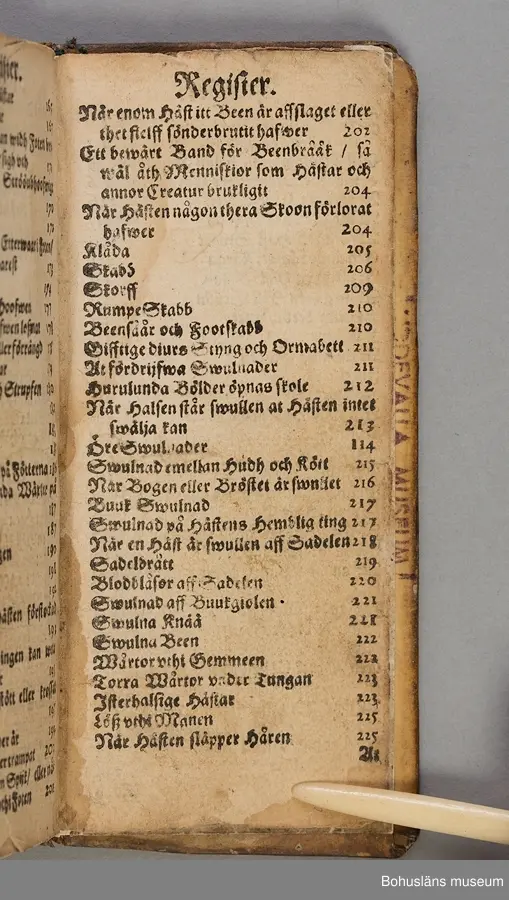 Register.
När enom Häst itt Been är affslaget eller
thet sielff sönderbrutit hafwer 202
Ett bewärt Band för Beenbrååk / så
wäl åth Menniskior som Hästar och
annor Creatur brukligit 204
När Hästen någon thera Skoon förlorat
hafwer 204
Klåda 205
Skabb 206
Skorff 209
RumpeSkabb 210
Beensåår och Footskabb 210
Gifftige diurs Styng och Ormabett 211
At fördrijfwa Swulnader 211
Hurulunda Bölder öpnas skole 212
När Halsen står swullen at Hästen intet
swälja kan 213
Öre Swulnader 114
Swulnad emellan Hudh och Kött 215
När Bogen eller Bröstet är swullet 216
Buuk Swulnad 217
Swulnad på Hästens Hemblig ting 217
När en Häst är swullen aff Sadelen 218
Sadelbrått 219
Blodblåsor aff Sadelen 220
Swulnad aff Buukgiolen 221
Swulna Knää 221
Swulna Been 222
Wårtor vthi Gemmeen 222
Torra Wårtor vnder Tungan 223
Isterhalsige Hästar 223
Löß vthi Manen 225
När Hästen släpper Håren 225
At
UDDEVALLA MUSEUM
Bohusläns museum